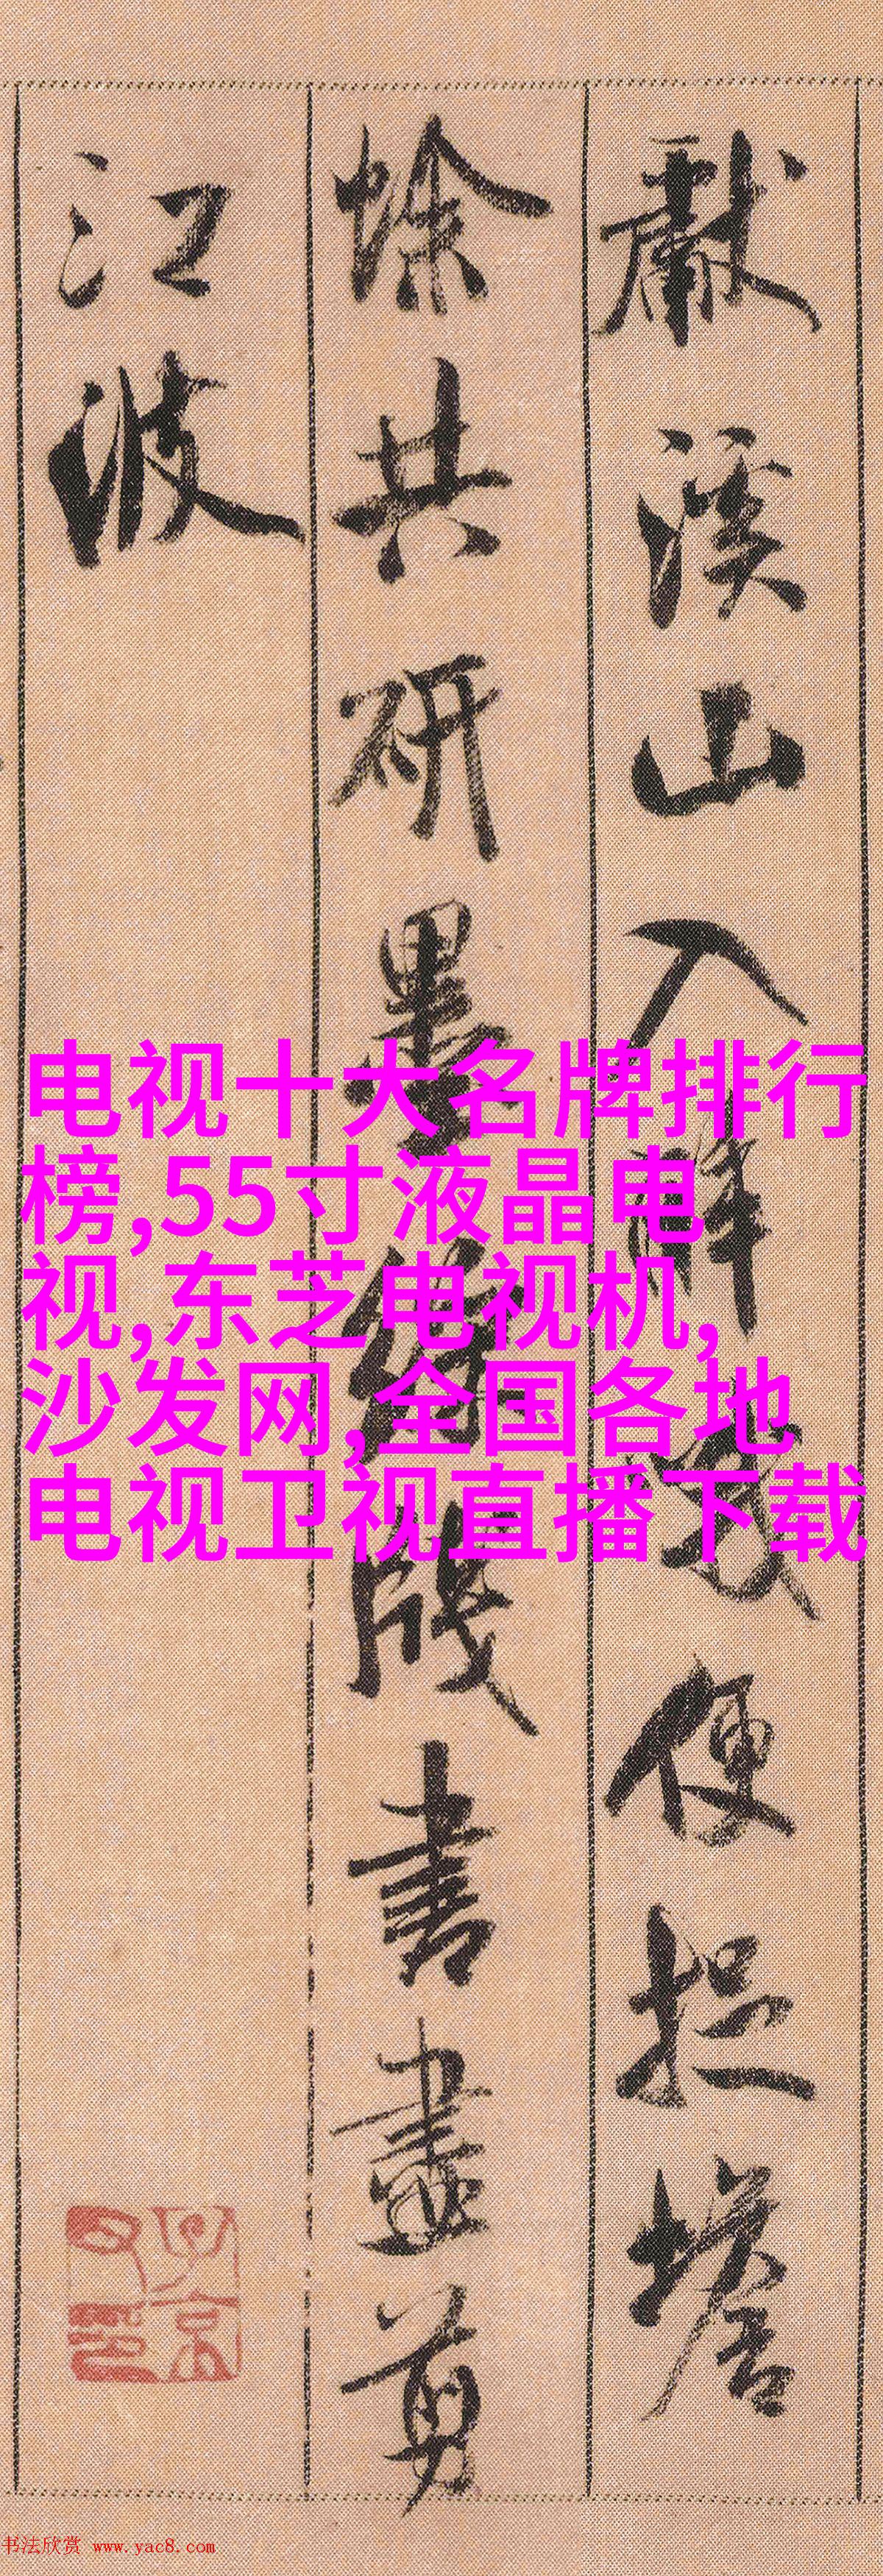 獻溪山入醉哦便捉蟾
蜍共研墨綵牋書盡剪
江波
电视十大名牌排行
榜,55寸液晶电
视,东芝电视机,
沙发网,全国各地
电视卫视直播下载
书法欣赏 www.yac8.com